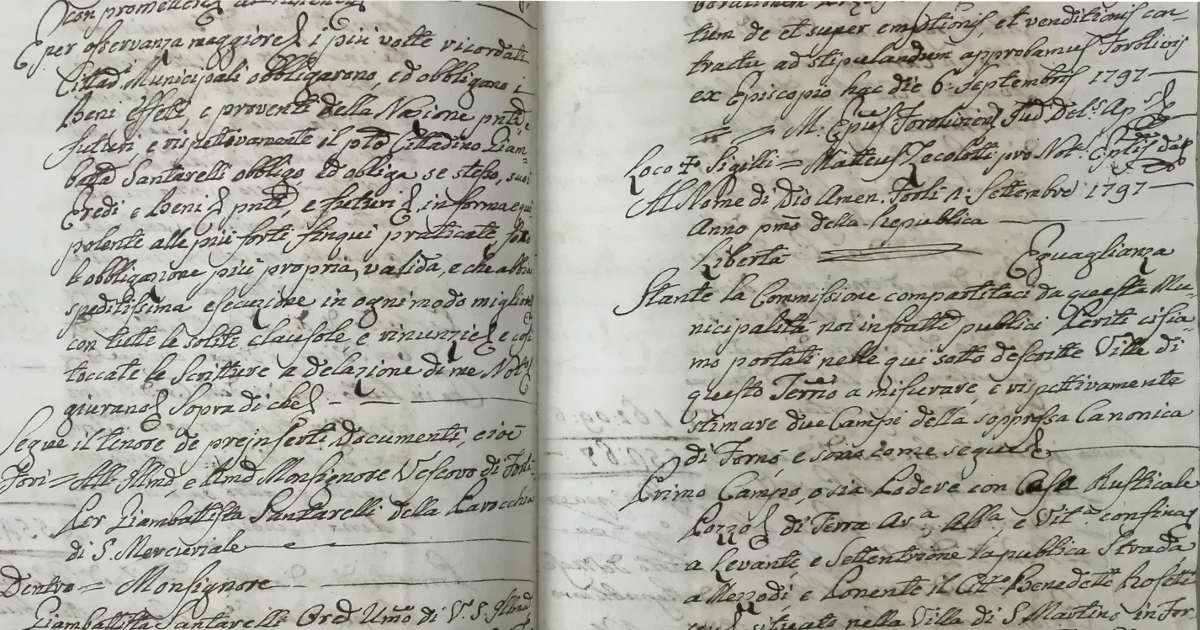 con promettere
E per osservanza maggiore i più volte ricordati
Cittad Municipali obbligarono, ed obbligano i
Beni effetti, e proventi della Nazione pntĩ, e
futuri, e rispettivamente il pto Cittadino Giam-
batta Santarelli obbligò ed obliga se stesso, suoi
Eredi e Beni pntĩ, e futuri in forma equi
polente alle più forti finqui praticate
obbligazione più propria, valida, e che abbia
speditissima esecuzione in ogni modo migliore
con tutte le solite clausole e rinunzie e così
toccate le Scritture a delazione di me Not
giurano Sopra di che
Segue il tenore de preinserti Documenti, cioè
Fori = All Illmo, e Rmo Monsignore Vescovo di Forlì
Per Giambattista Santarelli della Parocchia
di S. Mercuriale
Dentro = Monsignore
Giambattista Santarelli Ored Umo di V. S. Illma
tum de et super emptionis, et venditionis con-
tractu ad stipulandum approbamus Forolivij
ex Episcopio hac die 6 Septembris 1797
= M. Epus Foroliviens Jud. Del.s Ap.
Loco + Sigilli = Matteus Zecolotti pro Not.
Al Nome di Dio Amen. Forlì 1: Settembre 1797
Anno pmo della Republica
Libertà Eguaglianza
Stante la Commissione compartitaci da questa Mu
nicipalità noi infratti publici Periti ci sia-
mo portati nelle qui sotto descritte Ville di
questo Terrio a misurare, e rispettivamente
stimare due Campi della soppressa Canonica
di Fornò e sono come segue
Primo Campo, o sia Podere con Casa Rusticale
Pozzo di Terra Ar.a Alb.a e Vit.a confina
a Levante e Settentrione la publica Strada
a Mezzodì e Ponente il Citt.o Benedetto Rosetti
situato nella Villa di S. Martino in For